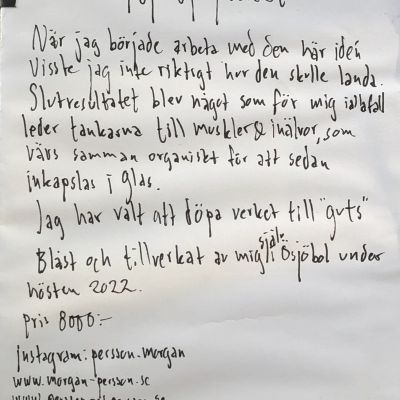 När jag började arbeta med den här idén
Visste jag inte riktigt hur den skulle landa.
Slutresultatet blev något som för mig iallafall
leder tankarna till muskler & inälvor, som
växs samman organiskt för att sedan
inkapslas i glas.
Jag har vält att döpa verket till "guts"
Blåst och tillverkat av mig själv i Ösjöbol under
hösten 2022.
pris 8000:-
instagram: persson.morgan
www.morgan-persson.se